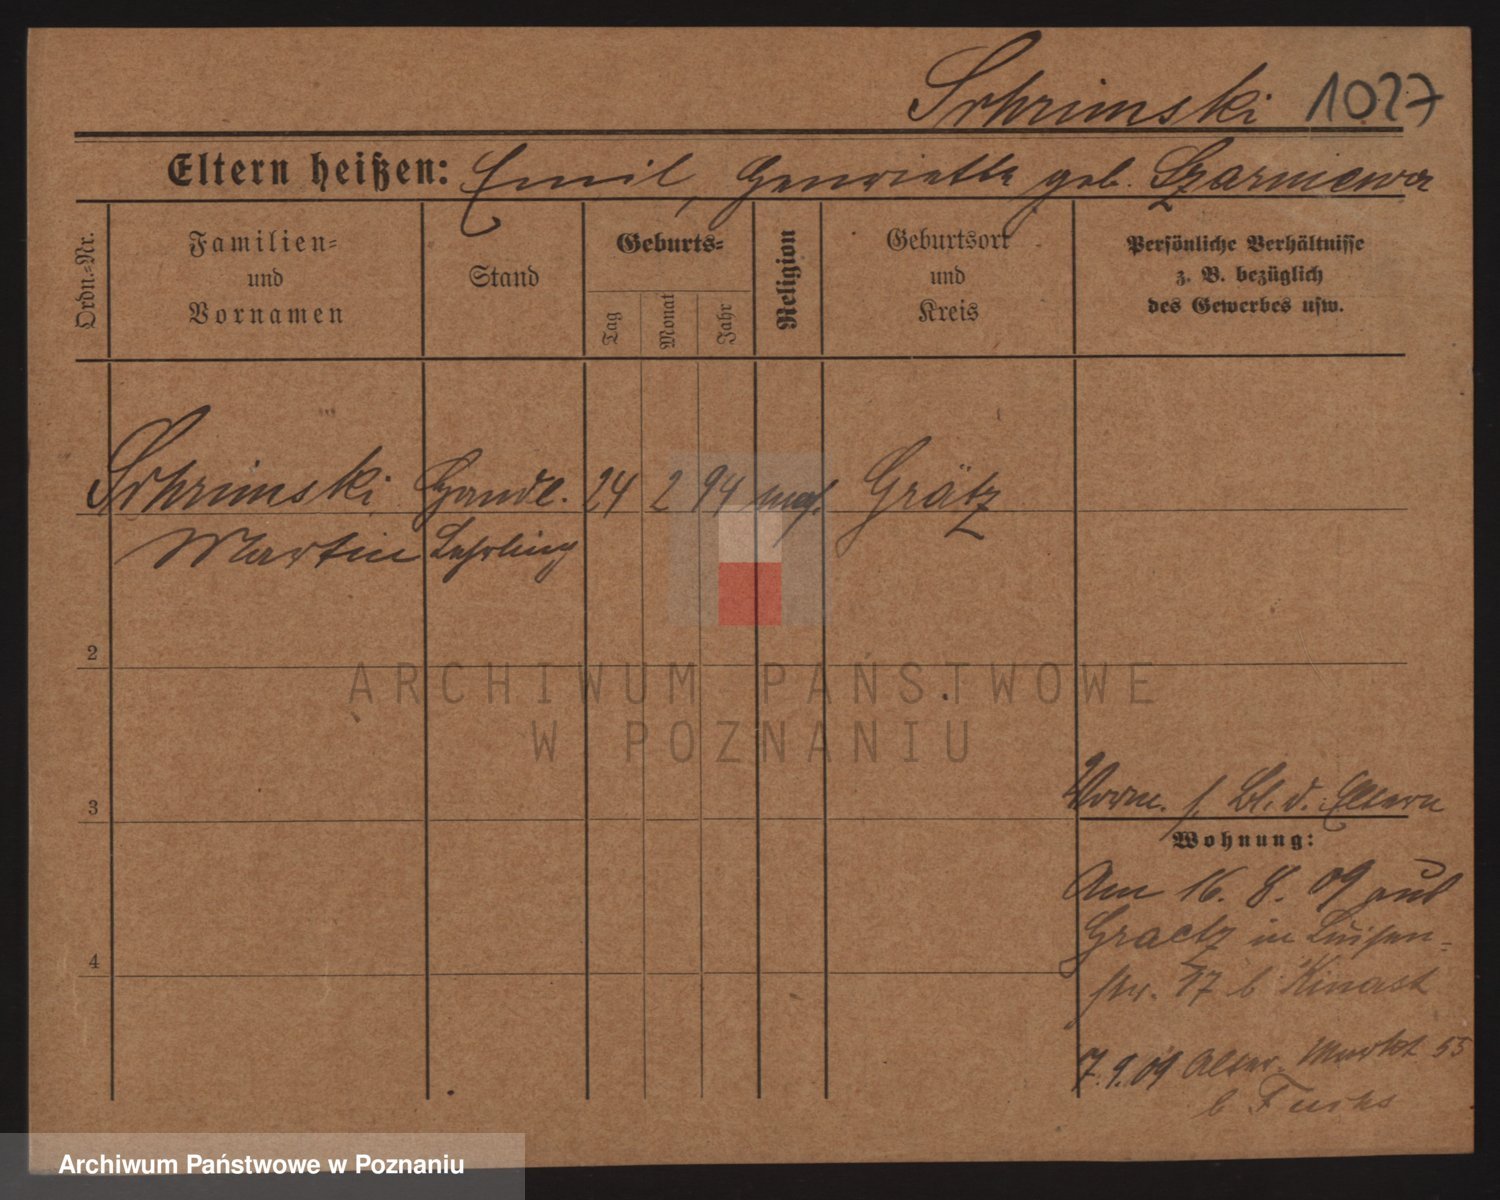 Schrimski 1027
Eltern heißen: Emil, Henriette geb. Czarniewer
Ordn.-Nr.
Familien-
und
Vornamen
Stand
Geburts-
Tag
Monat
Jahr
Religion
Geburtsort
und
Kreis
Persönliche Verhältnisse
z. B. bezüglich
des Gewerbes usw.
Schrimski Handl. 24 2 94 mos. Grätz
Martin Lehrling
2
3
4
Vorm. s. Bl. d. Eltern
Wohnung:
Am 16. 8. 09 aus
Graetz in Luisen-
str. 17 b Kinast
7. 9. 09 Alter Markt 55
b Fuchs
ARCHIWUM PAŃSTWOWE
W POZNANIU
Archiwum Państwowe w Poznaniu